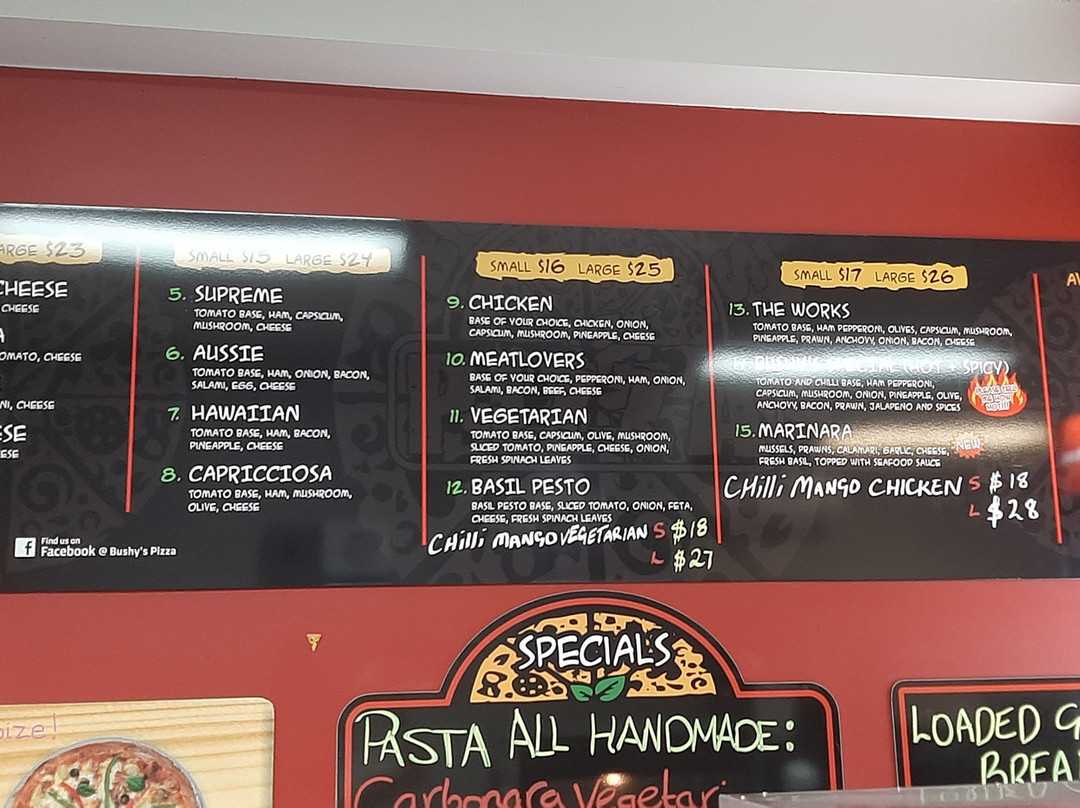 ARGE $23
CHEESE
CHEESE
A
OMATO, CHEESE
NI, CHEESE
ESE
ESE
SMALL $15 LARGE $24
5. SUPREME
TOMATO BASE, HAM, CAPSICUM,
MUSHROOM, CHEESE
6. AUSSIE
TOMATO BASE, HAM, ONION, BACON,
SALAMI, EGG, CHEESE
7. HAWAIIAN
TOMATO BASE, HAM, BACON,
PINEAPPLE, CHEESE
8. CAPRICCIOSA
TOMATO BASE, HAM, MUSHROOM,
OLIVE, CHEESE
Find us on
Facebook @ Bushy's Pizza
SMALL $16 LARGE $25
9. CHICKEN
BASE OF YOUR CHOICE, CHICKEN, ONION,
CAPSICUM, MUSHROOM, PINEAPPLE, CHEESE
10. MEATLOVERS
BASE OF YOUR CHOICE, PEPPERONI, HAM, ONION,
SALAMI, BACON, BEEF, CHEESE
11. VEGETARIAN
TOMATO BASE, CAPSICUM, OLIVE, MUSHROOM,
SLICED TOMATO, PINEAPPLE, CHEESE, ONION,
FRESH SPINACH LEAVES
12. BASIL PESTO
BASIL PESTO BASE, SLICED TOMATO, ONION, FETA,
CHEESE, FRESH SPINACH LEAVES
CHilli MANGO VEGETARIAN S $18
L $27
SMALL $17 LARGE $26
13. THE WORKS
TOMATO BASE, HAM PEPPERONI, OLIVES, CAPSICUM, MUSHROOM,
PINEAPPLE, PRAWN, ANCHOVY, ONION, BACON, CHEESE
BUSHY'S SPECIAL (HOT + SPICY)
TOMATO AND CHILLI BASE, HAM PEPPERONI,
CAPSICUM, MUSHROOM, ONION, PINEAPPLE, OLIVE,
ANCHOVY, BACON, PRAWN, JALAPENO AND SPICES
PLEASE TELL
ME HOW
HOT!!!
15. MARINARA
MUSSELS, PRAWNS, CALAMARI, GARLIC, CHEESE,
FRESH BASIL, TOPPED WITH SEAFOOD SAUCE
NEW
CHilli MANGO CHICKEN S $18
L $28
SPECIALS
PASTA ALL HANDMADE:
Carbonara Vegetari
LOADED G
BREA